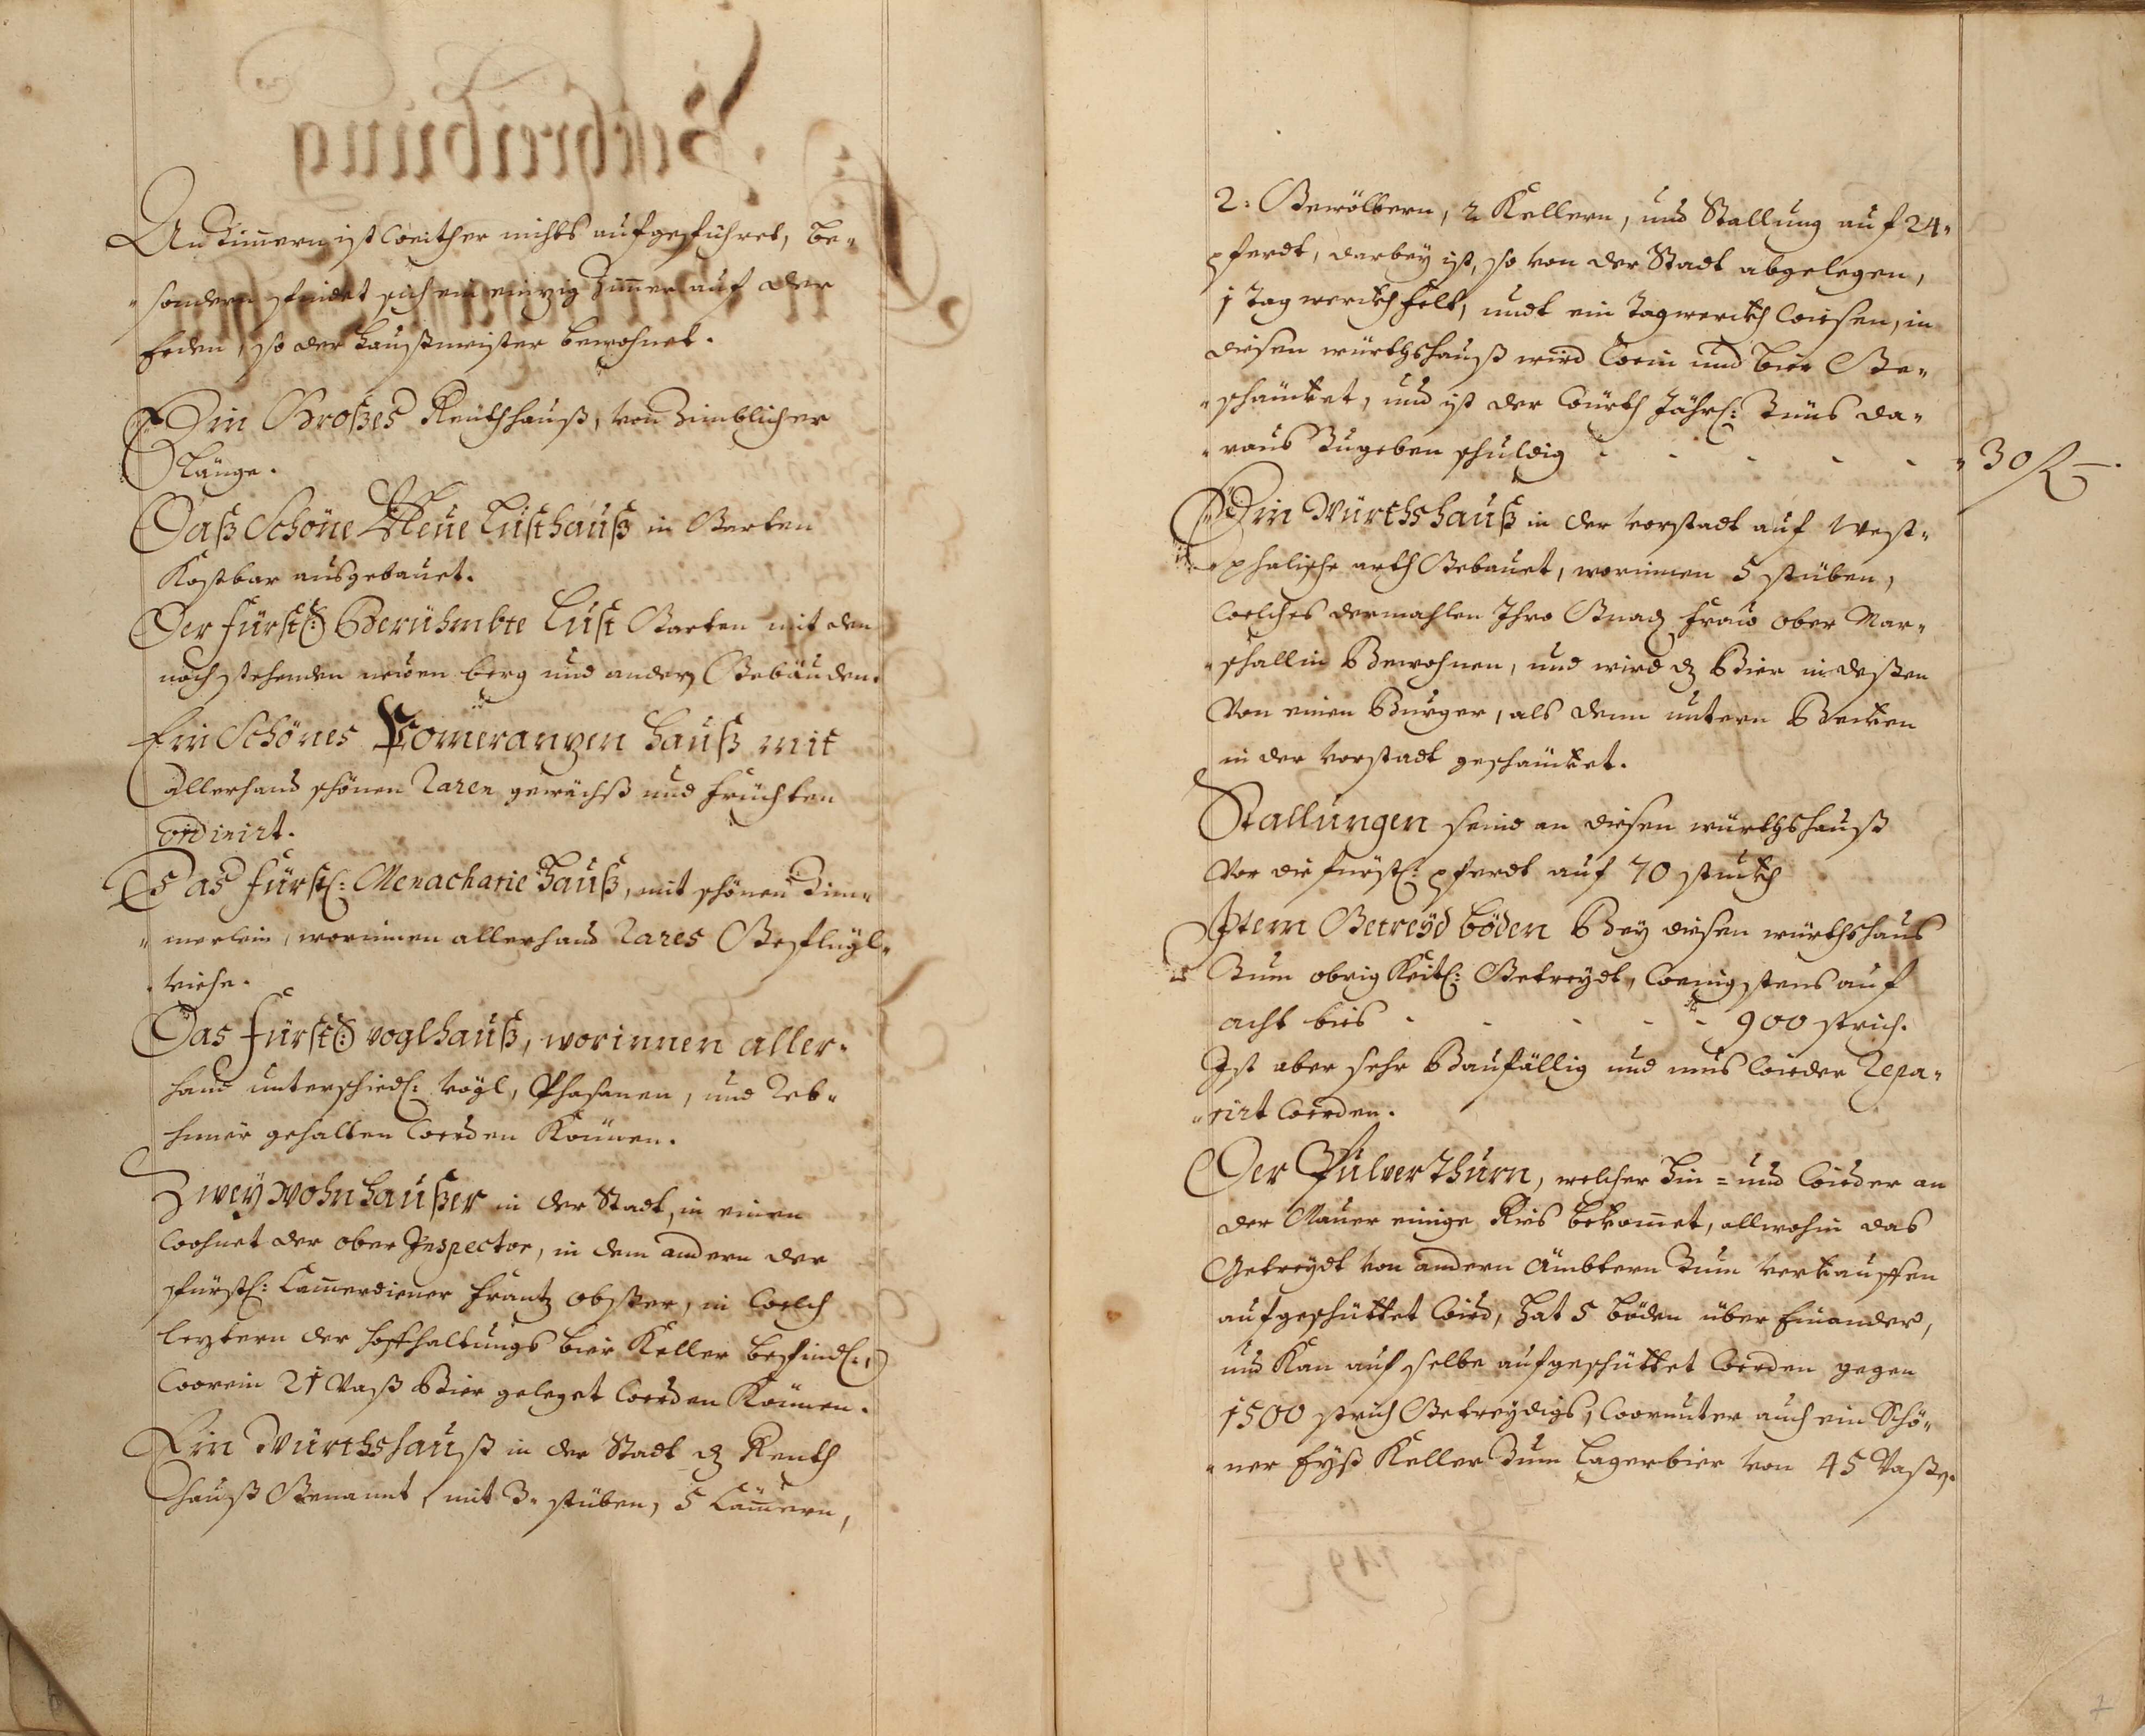 An Zimern ist weither nichts aufgeführet, be-
sondern findet sich ein einzig Zimer auf der
Erden, so der Haußmeister bewohnet.
Ein Großes Reuthhauß, von Zimblicher
Länge.
Daß Schöne Neue Lusthauß in Garten
Kostbar ausgebauet.
Der fürstl: Berühmbte Lust Garten mit den
noch stehenden neuen berg und anderen Gebäuden.
Ein Schönes Pomeranzen Hauß mit
allerhand schönen Raren gewächß und früchten
ordinirt.
Das fürstl: Menacharie Hauß, mit schönen Zim-
merlein, worinnen allerhand Rares Geflügl-
viehe.
Das fürstl: voglhauß, worinnen aller-
hand unterschiedl: Vögl, Phasanen, und Reb-
hiner gehalten werden Können.
Zwey wohnhaußer in der Stadt, in einen
wohnet der ober Inspector, in dem andern der
fürstl: Camerdiener Frantz obster, in welch
leztern der Hoffhaltungs bier Keller befindl:
worein 21 Vaß Bier geleget werden Können.
Ein Würthshauß in der Stadt dz Reuth
hauß Genannt, mit 3. stuben, 5 Camern,
2: Gewölbern, 2 Kellern, und Stallung auf 24.
pferdt, darbey ist, so von der Stadt abgelegen,
1 Tagwerckh felt, undt ein Tagwerckh wiesen, in
diesen würthshauß wird wein und bier Ge-
schäncket, und ist der würth Jährl: Zins da-
raus Zugeben schuldig - - - - - 30 f -.
Ein Würthshauß in der vorstadt auf West-
phalische arth Gebauet, worinnen 5 stuben,
welches dermahlen Ihro Gnad frau ober Mar-
schallin Bewohnen, und wird dz Bier indeßen
Von einen Burger, als denn untern Becken
in der Vorstadt geschäncket.
Stallungen seind an diesen würthshauß
Vor die fürstl: pferdt auf 70 stuckh
Item Getreyd böden Bey diesen würthshaus
Zum obrigKeitl: Getreydt, wenigstens auf
acht bis - - - - - 900 strich.
Ist aber sehr Baufällig und mus wieder Repa-
rirt werden.
Der Pulver Thurn, welcher Hin = und wieder an
der Mauer einige Ries bekomet, allwohin das
Getreydt von andern Ämbtern Zum verkauffen
aufgeschüttet wird, Hat 5 böden über Einander,
und Kan auf selbe aufgeschüttet werden gegen
1500 strich Getreydigs, worunter auch ein Schö-
ner Eyß Keller Zum Lagerbier von 45 Vaßen.